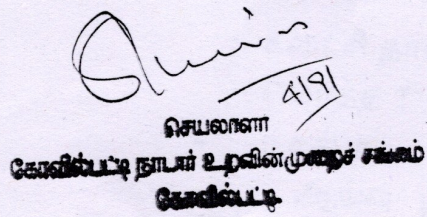 4/9/
செயலாளர்
கோவில்பட்டி நாடார் உறவின்முறைச் சங்கம்
கோவில்பட்டி.